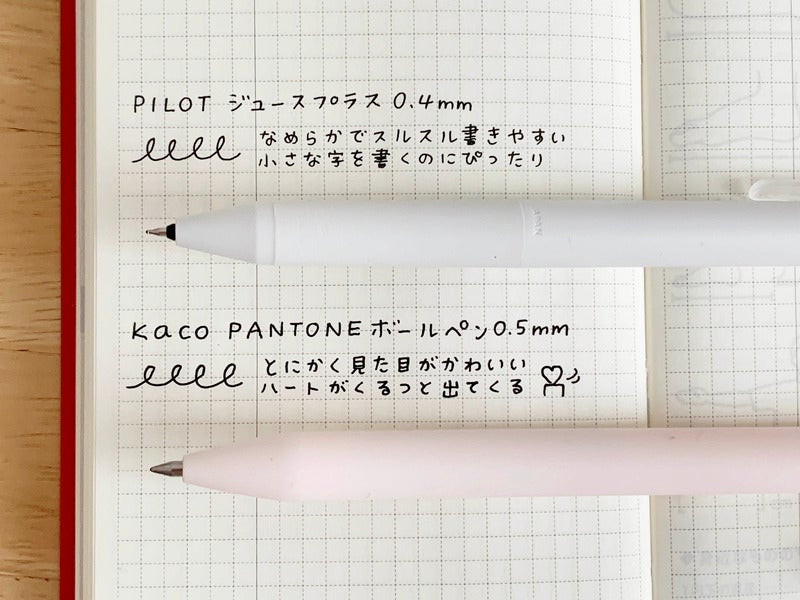 PILOT ジュースプラス 0.4mm
なめらかでスルスル書きやすい
小さな字を書くのにぴったり
JAPAN
Kaco PANTONE ボールペン 0.5mm
とにかく見た目がかわいい
ハートがくるっと出てくる